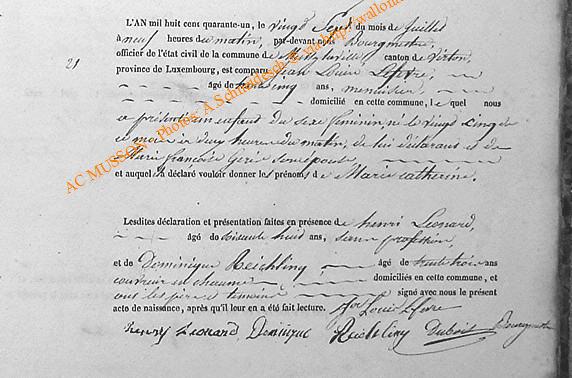 L'AN mil huit cens quarante-un, le vingt Sept du mois de juillet
à neuf heures du matin, par-devant nous Bourgmestre
officier de l'état civil de la commune de canton de Virton,
21
province de Luxembourg, est comparu Jean Louis Lefevre,
âgé de trente cinq ans, menuisier
domicilié en cette commune, lequel nous
a présenté un enfant du sexe féminin né le vingt cinq de
ce mois à deux heures du matin, de lui déclarant et de
Marie françoise son épouse
et auquel a déclaré vouloir donner les prénoms de Marie catherine.
Lesdites déclaration et présentation faites en présence de henri Leonard,
âgé de soixante huit ans, profession
et de Dominique Reichling, âgé de trente trois ans
couvreur en chaume domiciliés en cette commune, et
ont les père et témoins signé avec nous le présent
acte de naissance, après qu'il leur en a été fait lecture. Louis Lefevre
henry Leonard Dominique Reichling Dubois Bourgmestre
AC MUSSON - Photos: A.Schmidesch & via http://wallonia